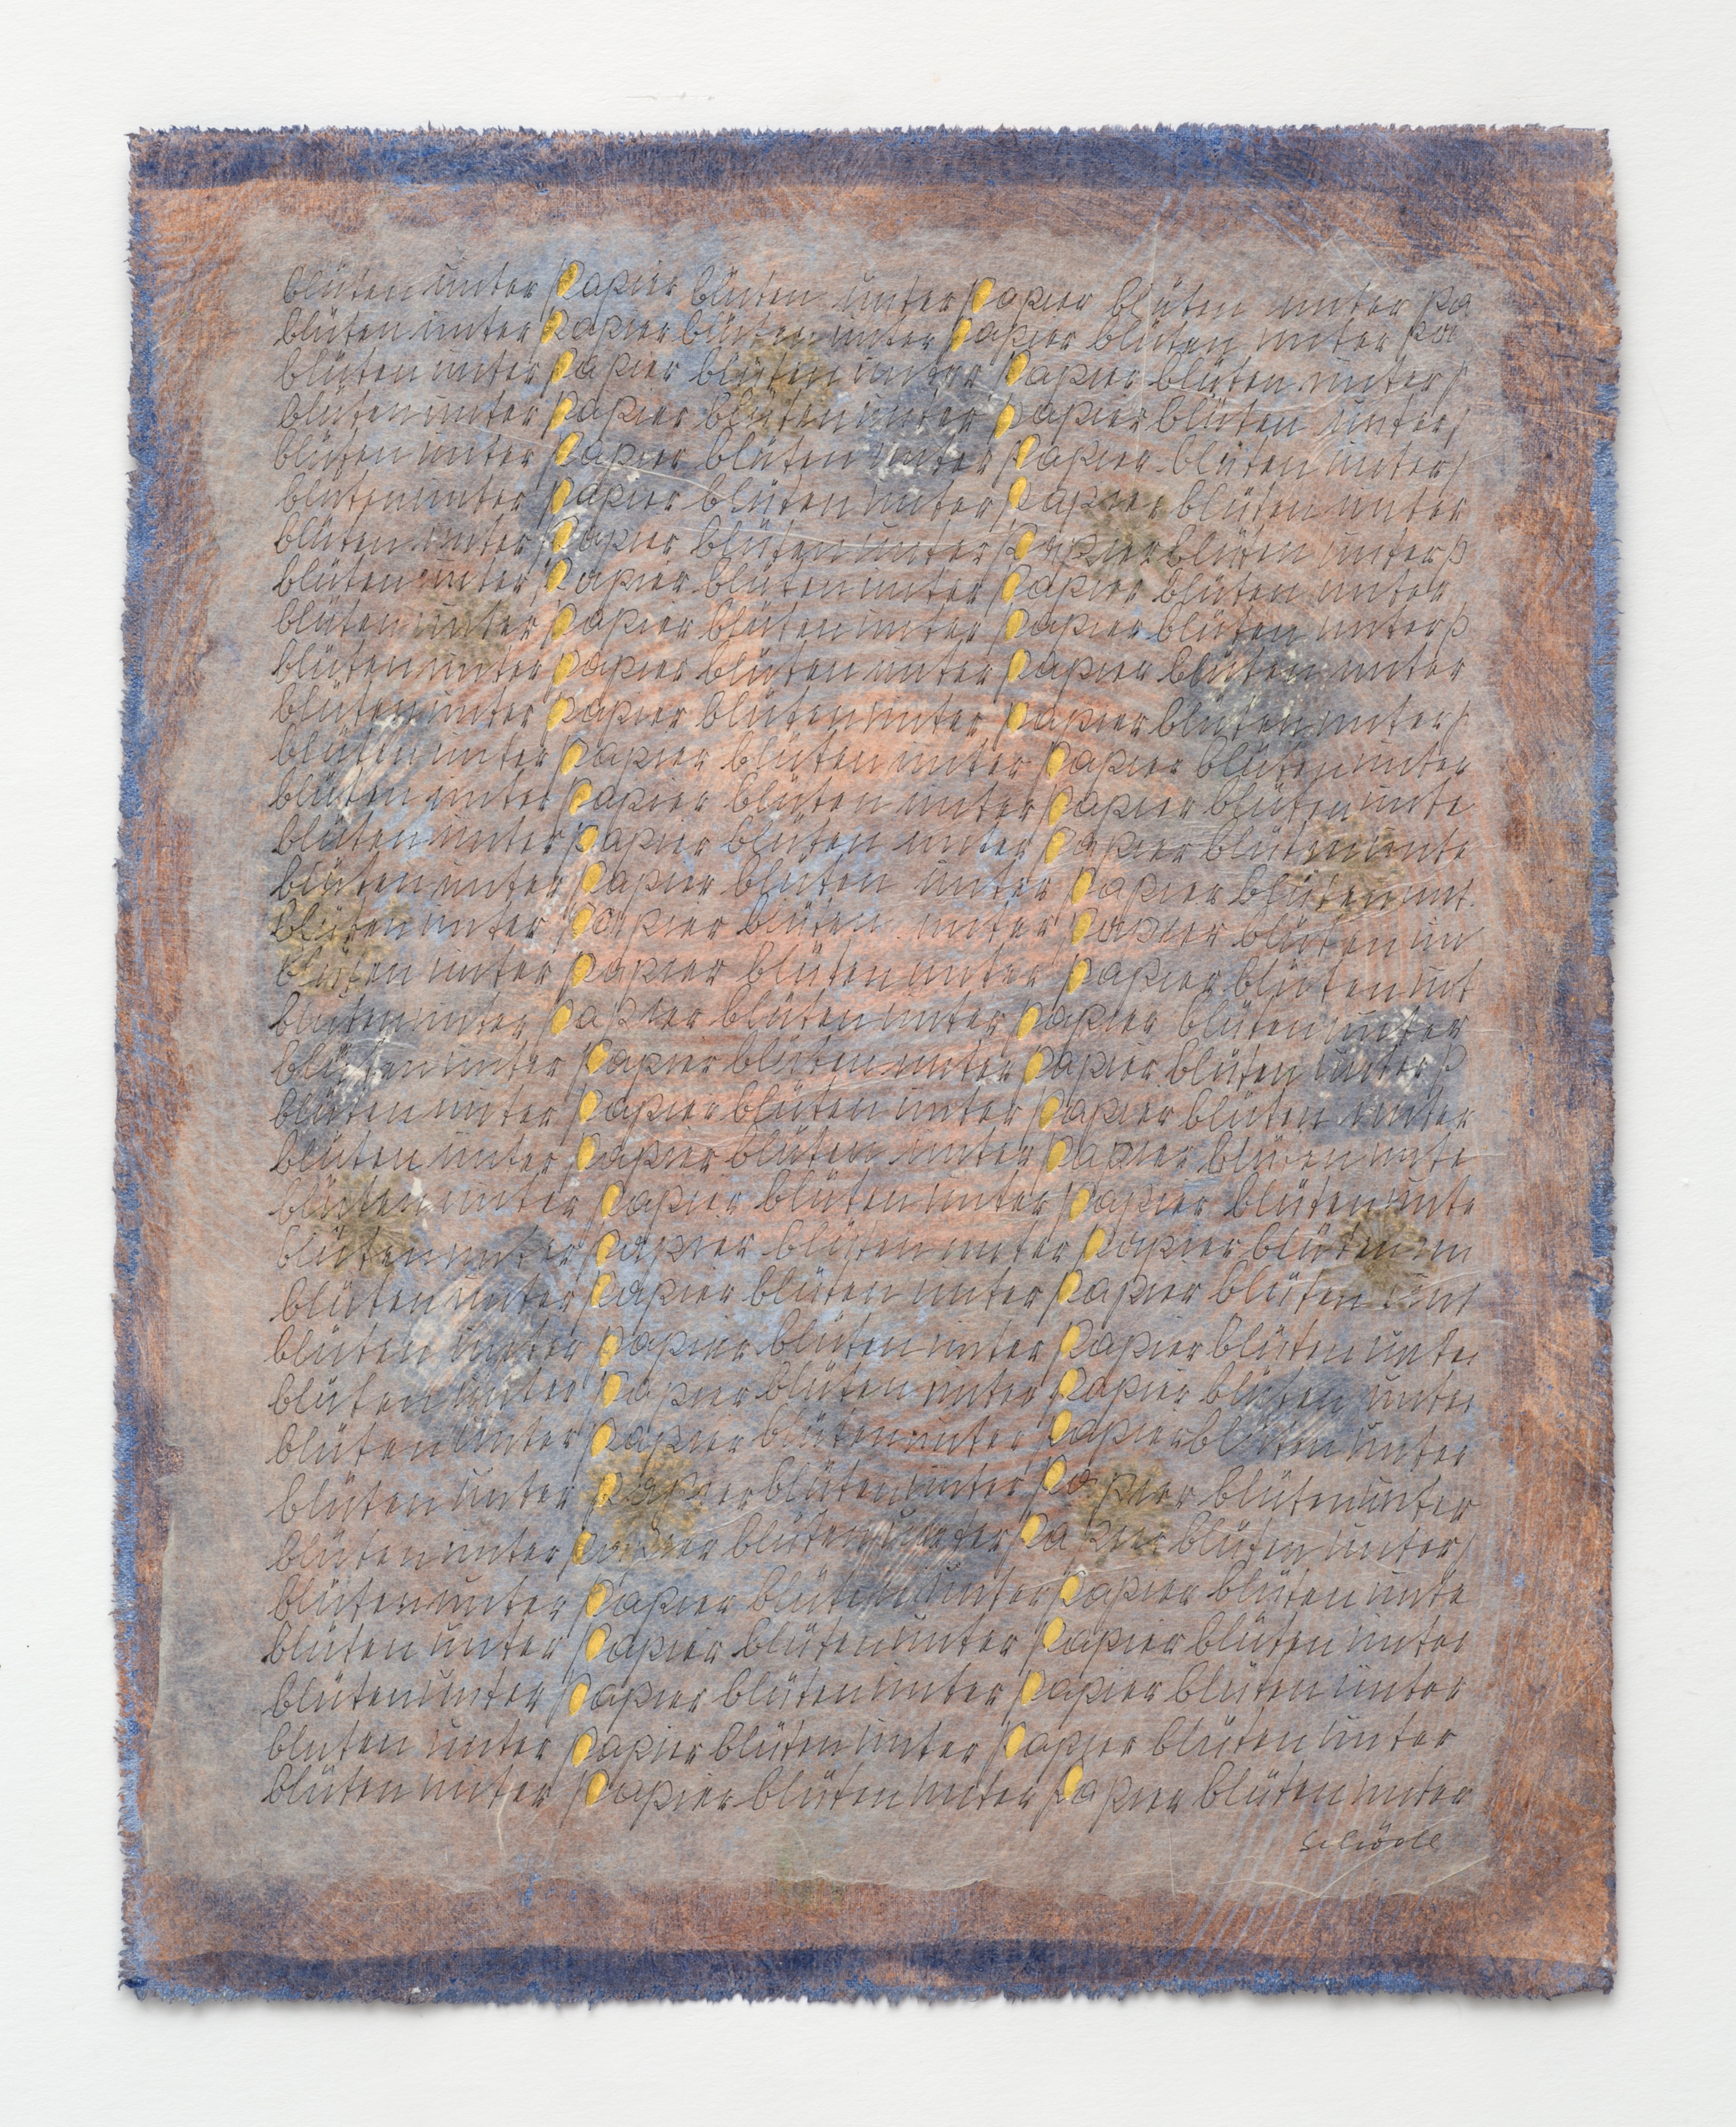 blüten unter papier blüten unter papier blüten unter pa
blüten unter papier blüten unter papier blüten unter pa
blüten unter papier blüten unter papier blüten unter p
blüten unter papier blüten unter papier blüten unter p
blüten unter papier blüten unter papier blüten unter p
blüten unter papier blüten unter papier blüten unter
blüten unter papier blüten unter papier blüten unter p
blüten unter papier blüten unter papier blüten unter
blüten unter papier blüten unter papier blüten unter p
blüten unter papier blüten unter papier blüten unter
blüten unter papier blüten unter papier blüten unter p
blüten unter papier blüten unter papier blüten unter
blüten unter papier blüten unter papier blüten unte
blüten unter papier blüten unter papier blüten unte
blüten unter papier blüten unter papier blüten unt
blüten unter papier blüten unter papier blüten un
blüten unter papier blüten unter papier blüten unt
blüten unter papier blüten unter papier blüten unter
blüten unter papier blüten unter papier blüten unter p
blüten unter papier blüten unter papier blüten unter
blüten unter papier blüten unter papier blüten unte
blüten unter papier blüten unter papier blüten unte
blüten unter papier blüten unter papier blüten un
blüten unter papier blüten unter papier blüten unt
blüten unter papier blüten unter papier blüten unte
blüten unter papier blüten unter papier blüten unter
blüten unter papier blüten unter papier blüten unter
blüten unter papier blüten unter papier blüten unter
blüten unter papier blüten unter papier blüten unter p
blüten unter papier blüten unter papier blüten unte
blüten unter papier blüten unter papier blüten unter
blüten unter papier blüten unter papier blüten unter
blüten unter papier blüten unter papier blüten unter
blüten unter papier blüten unter papier blüten unter